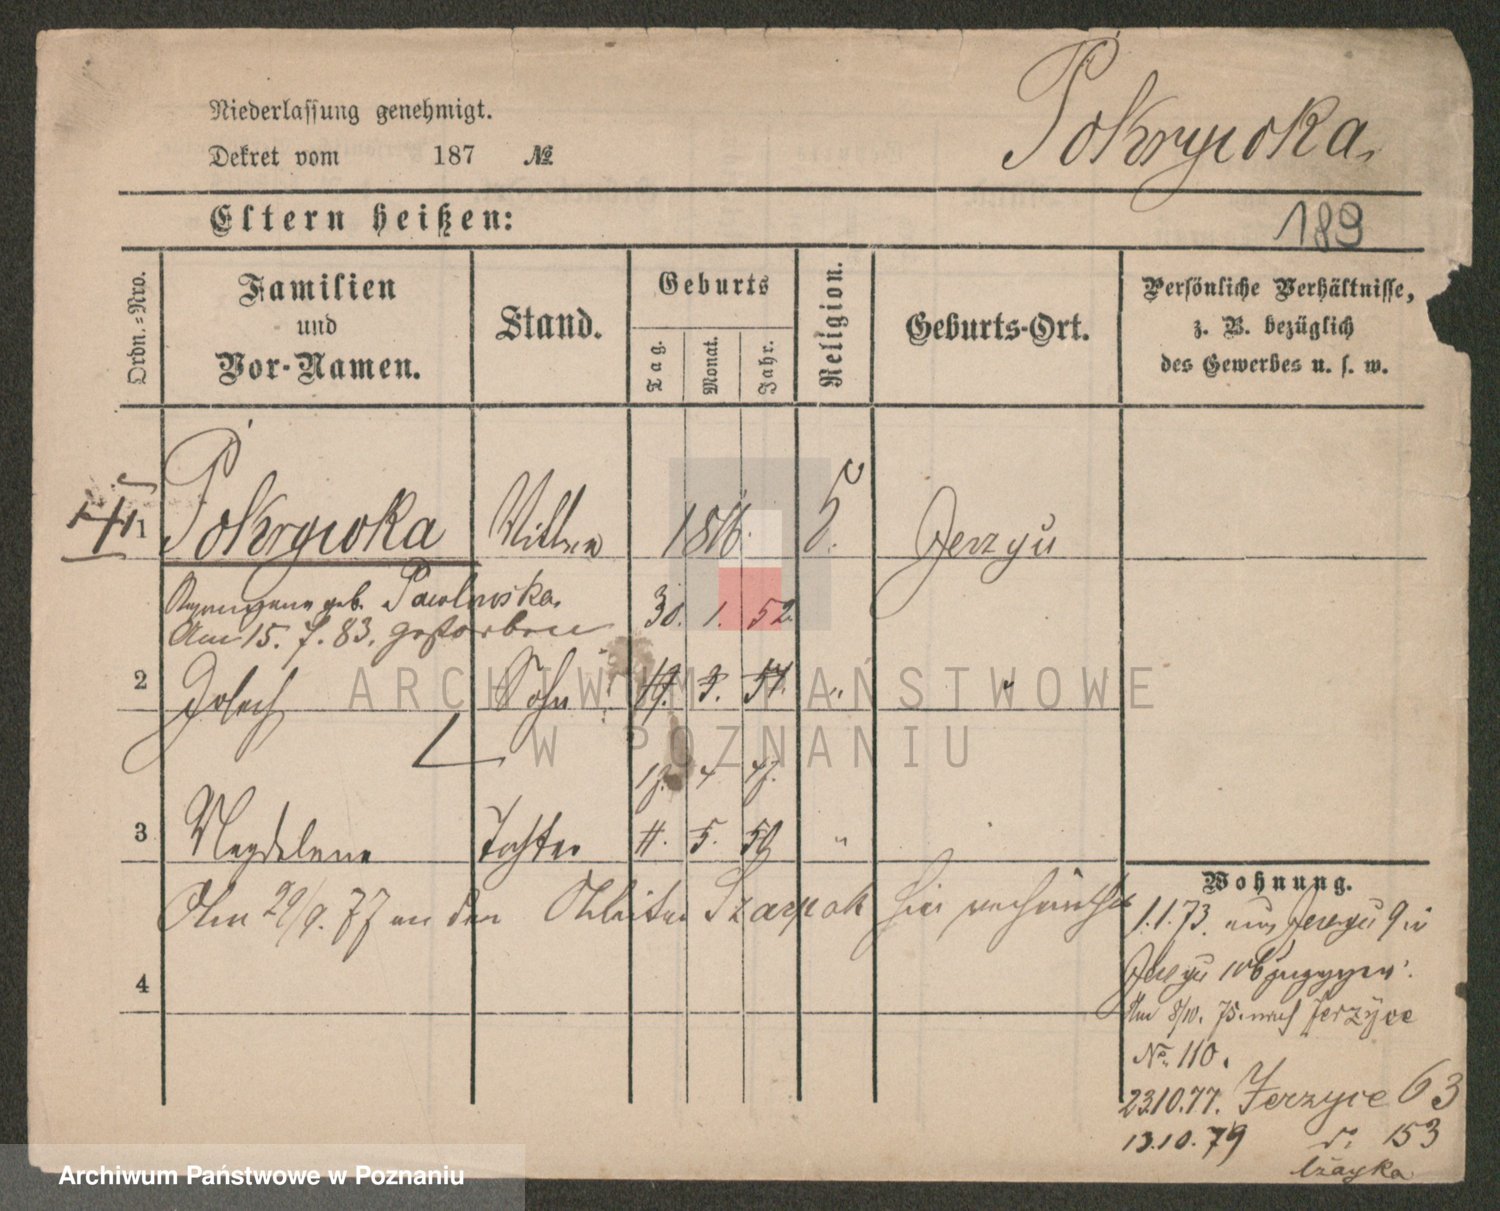 Niederlassung genehmigt.
Dekret vom 187 №
Pokrywka
189
Eltern heißen:
Ordn.-Nro.
Familien
und
Vor-Namen.
Stand.
Geburts
Tag.
Monat.
Jahr.
Religion.
Geburts-Ort.
Persönliche Verhältnisse,
z. B. bezüglich
des Gewerbes u. s. w.
1 Pokrywka 1816. Jerzyu
geb. Pawlowska. 30. 1. 52
Am 15. 7. 83. gestorben
2 Sohn 3. 57. "
4
3 Magdalena Tochter 5. 50 "
Am 29/9. 77 an den Szarpak hier
4
Wohnung.
1.1.73. aus Jerzyu 9 in
Jerzyu
Am 8/10. 75. nach Jerzyce
No. 110.
23.10.77. Jerzyce 63
13.10.79 do 153
ARCHIWUM PAŃSTWOWE
W POZNANIU
Archiwum Państwowe w Poznaniu